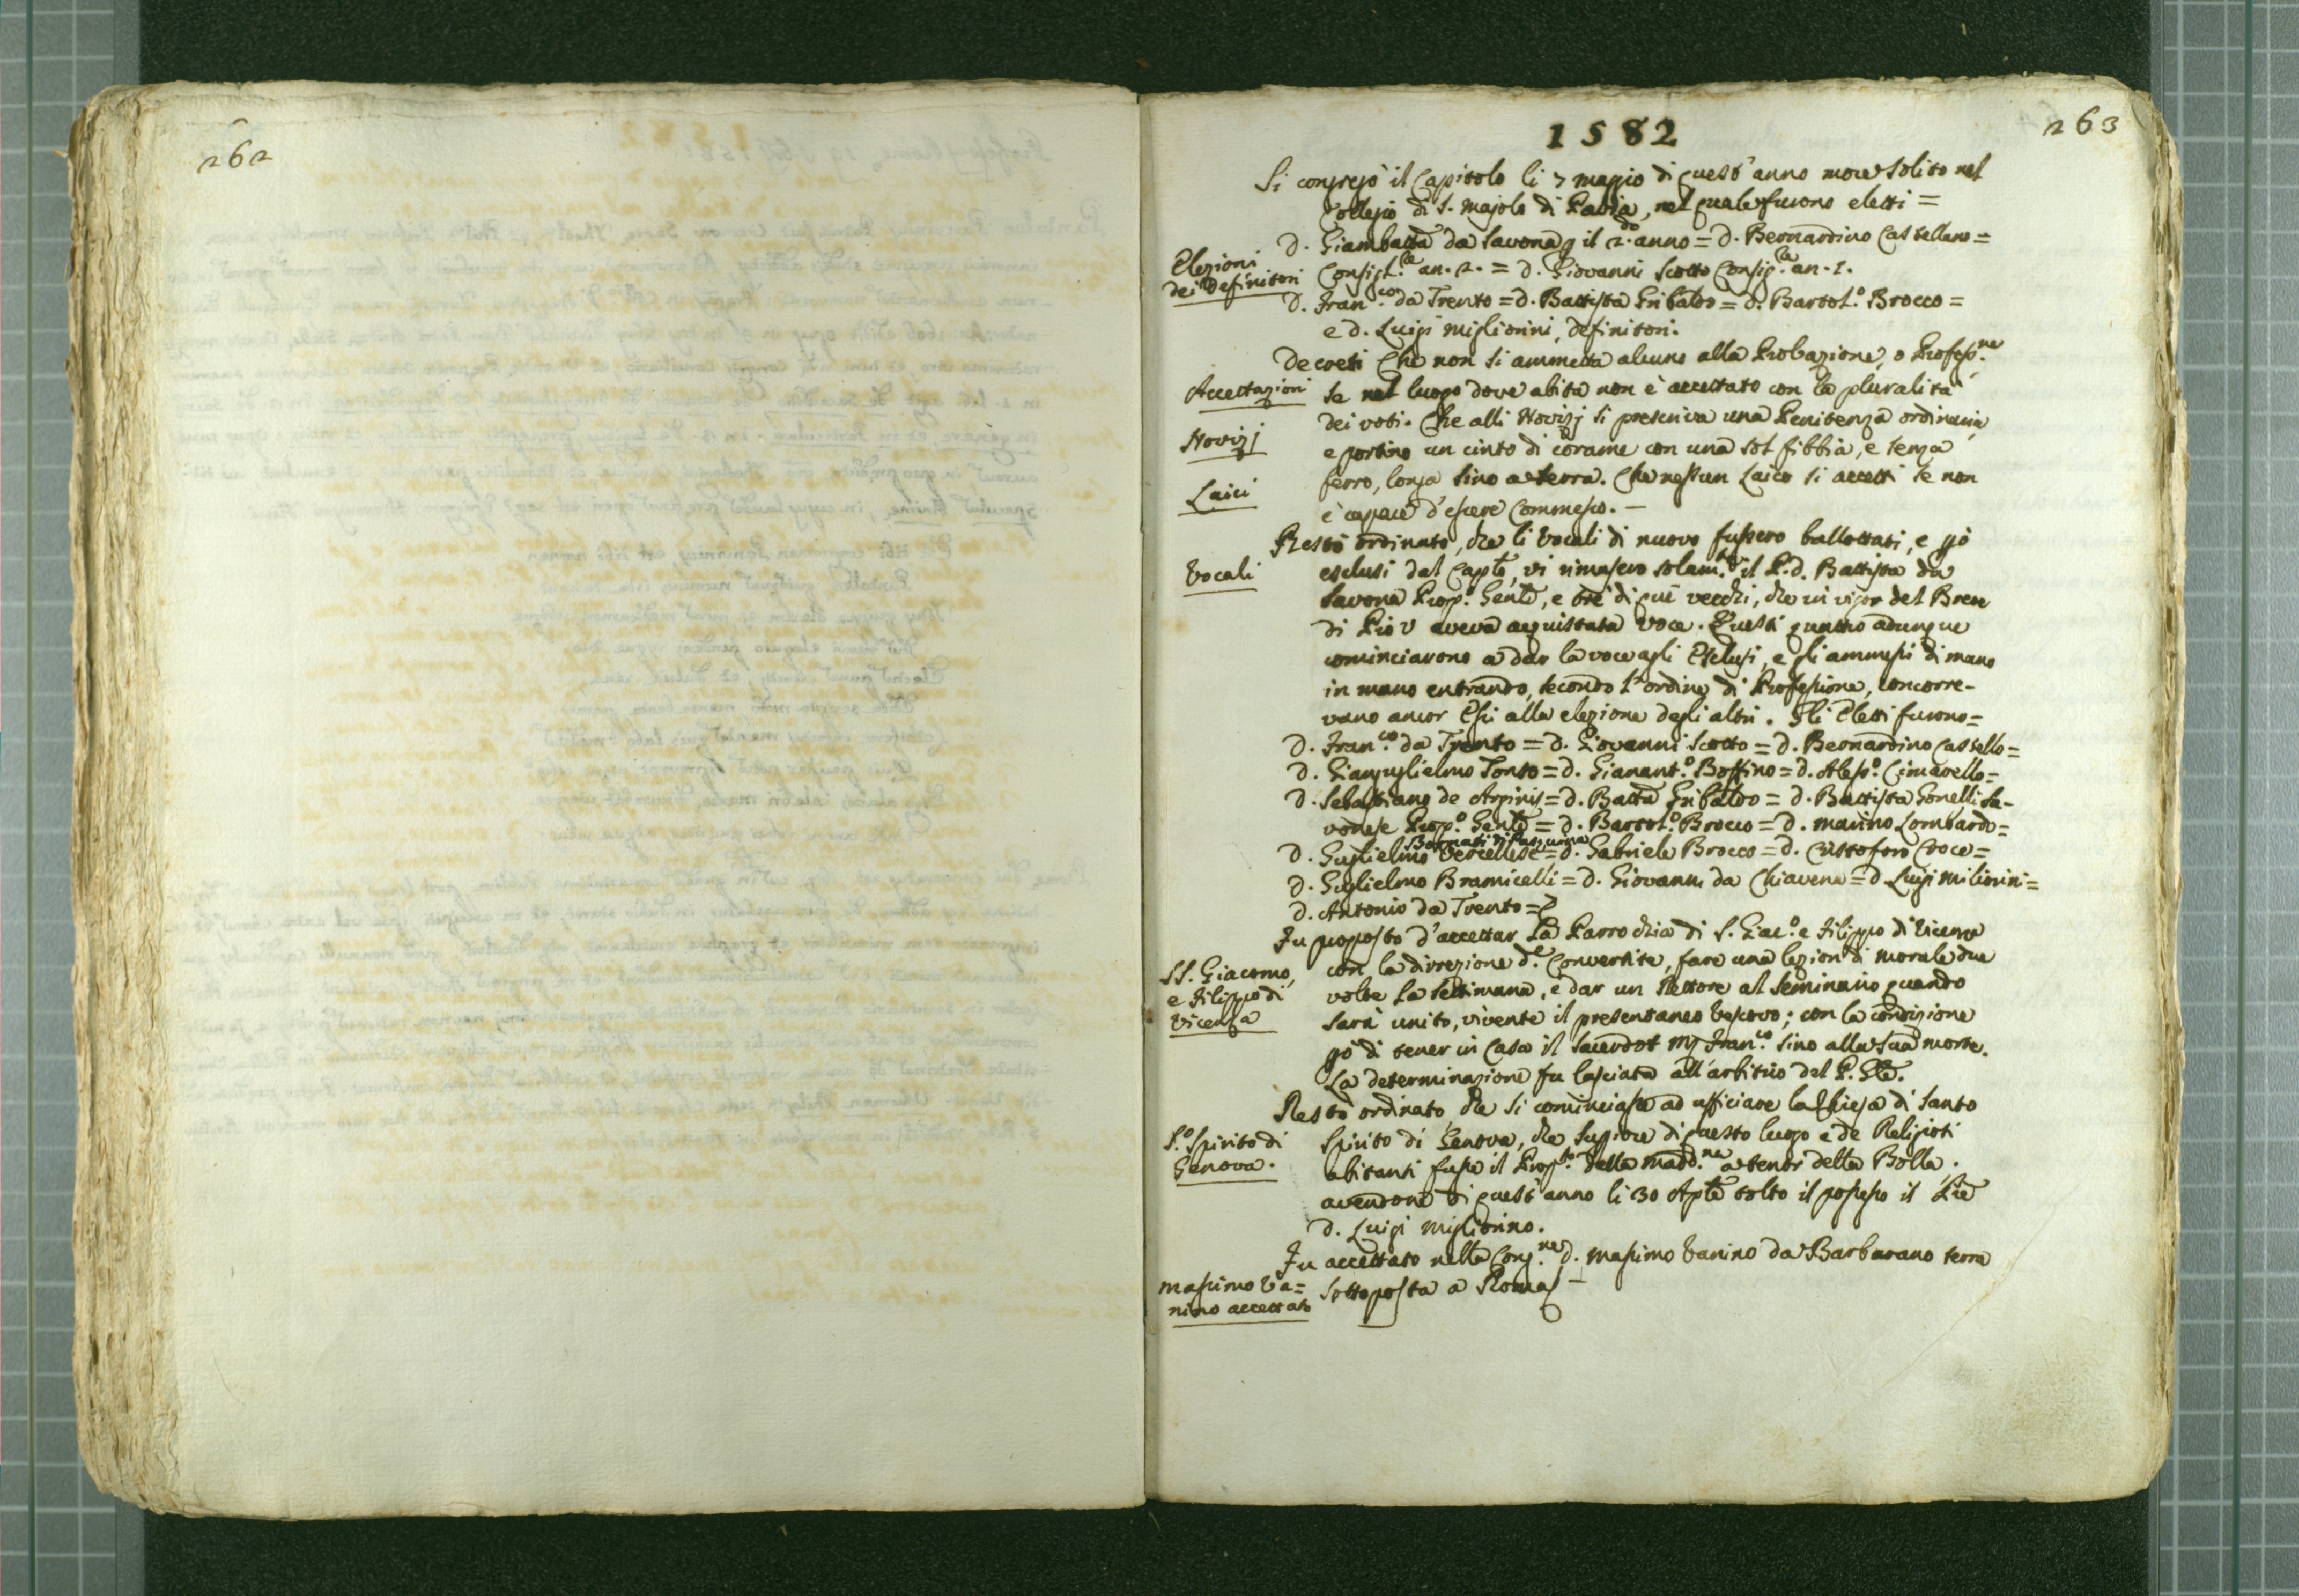 262
263
1582
Si congregò il Capitolo li 7 maggio di quest'anno more solito nel
Collegio di S. Majolo di Pavia, nel quale furono eletti =
D. Giambatta da Savona p il 2.do anno = D. Bernardino Castellano =
Elezioni
dei Definitori
Consigl.re an. 2. = D. Giovanni Scotto Consig.re an. 1.
D. Fran.co da Trento = D. Battista Gribaldo = D. Bartol.o Brocco =
e D. Luigi Migliorini, definitori.
Decreti Che non si ammetta alcuno alla Probazione, o Profess.ne
Accettazioni
se nel luogo dove abita non è accettato con la pluralità
dei voti. Che alli Novizj si prescriva una Penitenza ordinaria,
Novizj
e portino un cinto di corame con una sol fibbia, e senza
ferro, longa sino a terra. Che nessun Laico si accetti se non
Laici
è capace d'essere Commesso. —
Restò ordinato, che li Vocali di nuovo fussero ballottati, e pò
Vocali
esclusi dal Capto, vi rimasero solam.te il P. D. Battista da
Savona Prop.o Genle, e tre di que vecchi, che in vigor del Breve
di Pio V aveva acquistata voce. Questi quattro adunque
cominciarono a dar la voce agli Esclusi, e gli ammessi di mano
in mano entrando, secondo l'ordine di Professione, concorre-
vano ancor Essi alla elezione degli altri. Gli Eletti furono =
D. Fran.co da Trento = D. Giovanni Scotto = D. Bernardino Castello =
D. Gianguglielmo Tonso = D. Gianant.o Boffino = D. Aless.o Cimarello =
D. Sebastiano de Arpinis = D. Batta Gribaldo = D. Battista Gonelli Sa-
vonese Prop.o Genle = D. Bartol.o Brocco = D. Marino Lombardo =
Bornati di
D. Guglielmo Vercellese = D. Gabriele Brocco = D. Cristoforo Croce =
D. Guglielmo Bramicelli = D. Giovanni da Chiavena = D. Luigi Miliorini =
D. Antonio da Trento =
Fu proposto d'accettar la Parrochia di S. Giac.o e Filippo di Vicenza
SS. Giacomo,
e Filippo di
Vicenza
con la direzione d.e Convertite, fare una lezion di morale due
volte la settimana, e dar un Rettore al Seminario quando
sarà unito, vivente il presentaneo Vescovo; con la condizione
pò di tener in Casa il Sacerdot M Fran.co sino alla sua morte.
La determinazione fu lasciata all'arbitrio del P. Gle.
Restò ordinato, che si cominciasse ad ufficiare la Chiesa di Santo
S.o Spirito di
Genova.
Spirito di Genova, che Supiore di questo luogo e de Religiosi
abitanti fusse il Prop.to della Madd.na a tenor della Bolla.
avendone di quest'anno li 30 Aple tolto il possesso il Pre
D. Luigi Migliorino.
Fu accettato nella Cong.ne D. Massimo Vanino da Barbarano terra
Massimo Va=
nino accettato
sottoposta a Roma —